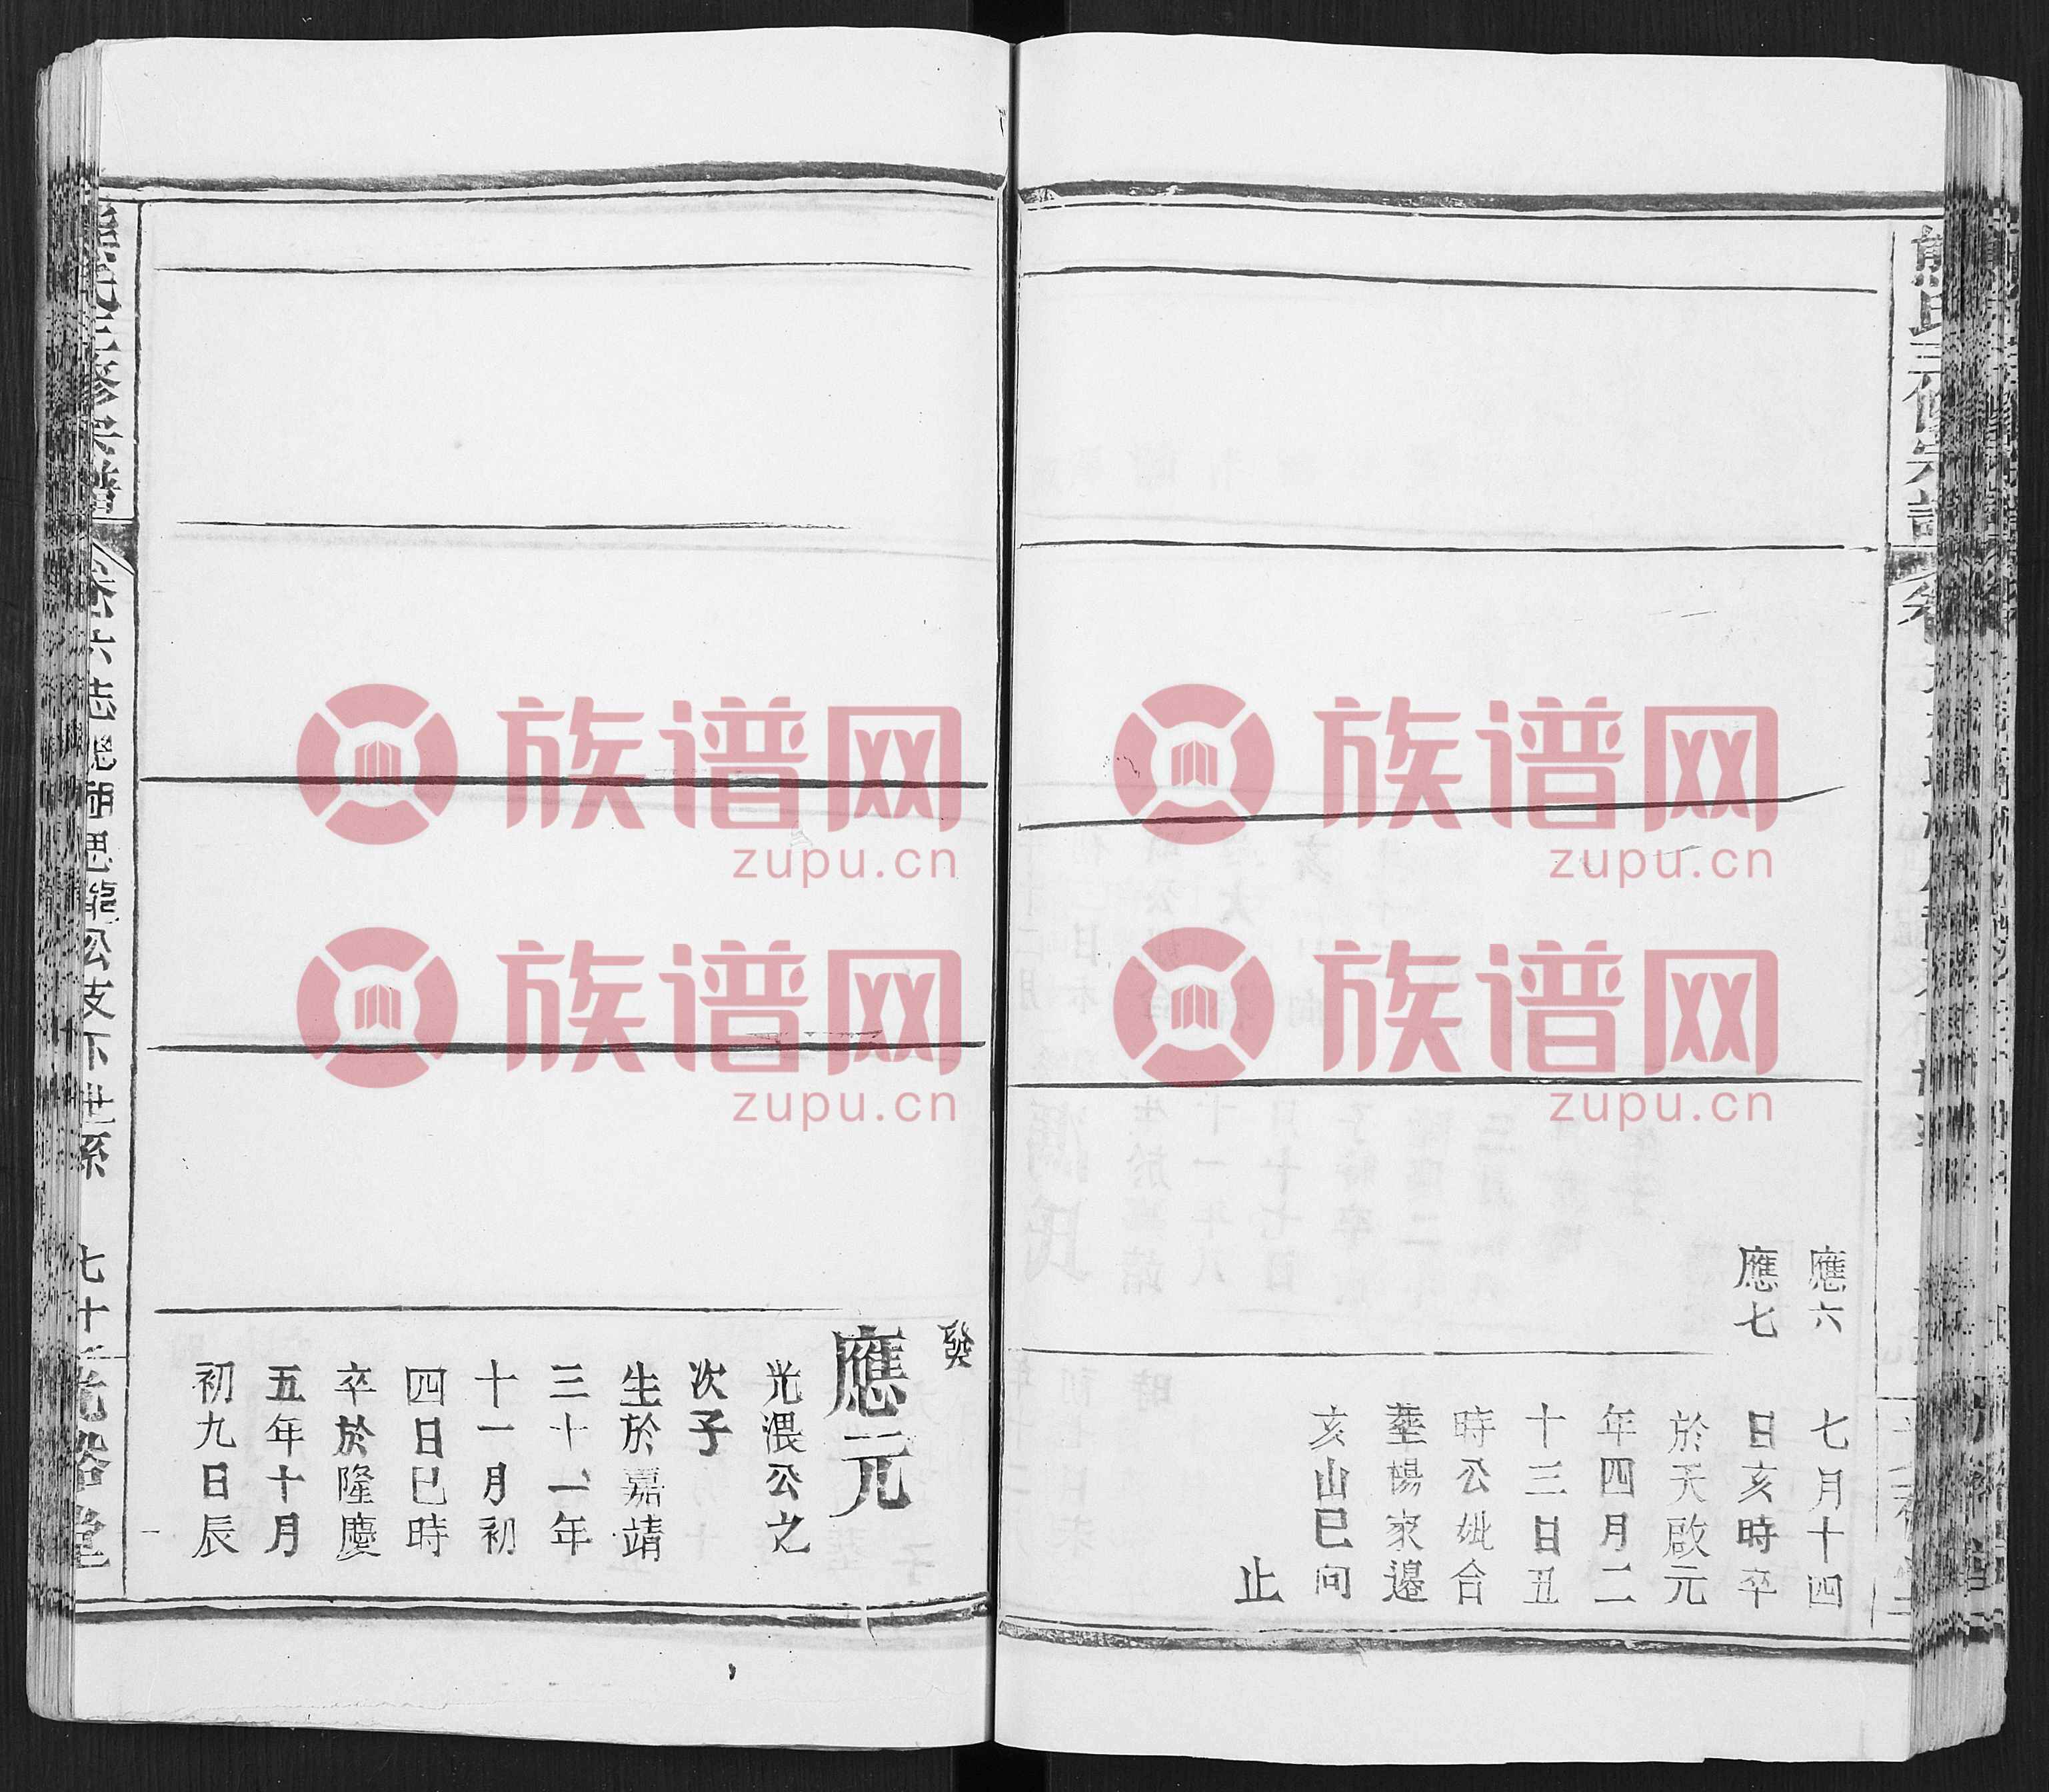 熊氏三修宗譜
應六
應七
七月十四
日亥時卒
於天啟元
年四月二
十三日丑
時公妣合
塟楊家邉
亥山巳向
止
發
應元
光渨公之
次子
生於嘉靖
三十一年
十一月初
四日巳時
卒於隆慶
五年十月
初九日辰
公支下世系
七十
族谱网
zupu.cn
族谱网
zupu.cn
族谱网
zupu.cn
族谱网
zupu.cn